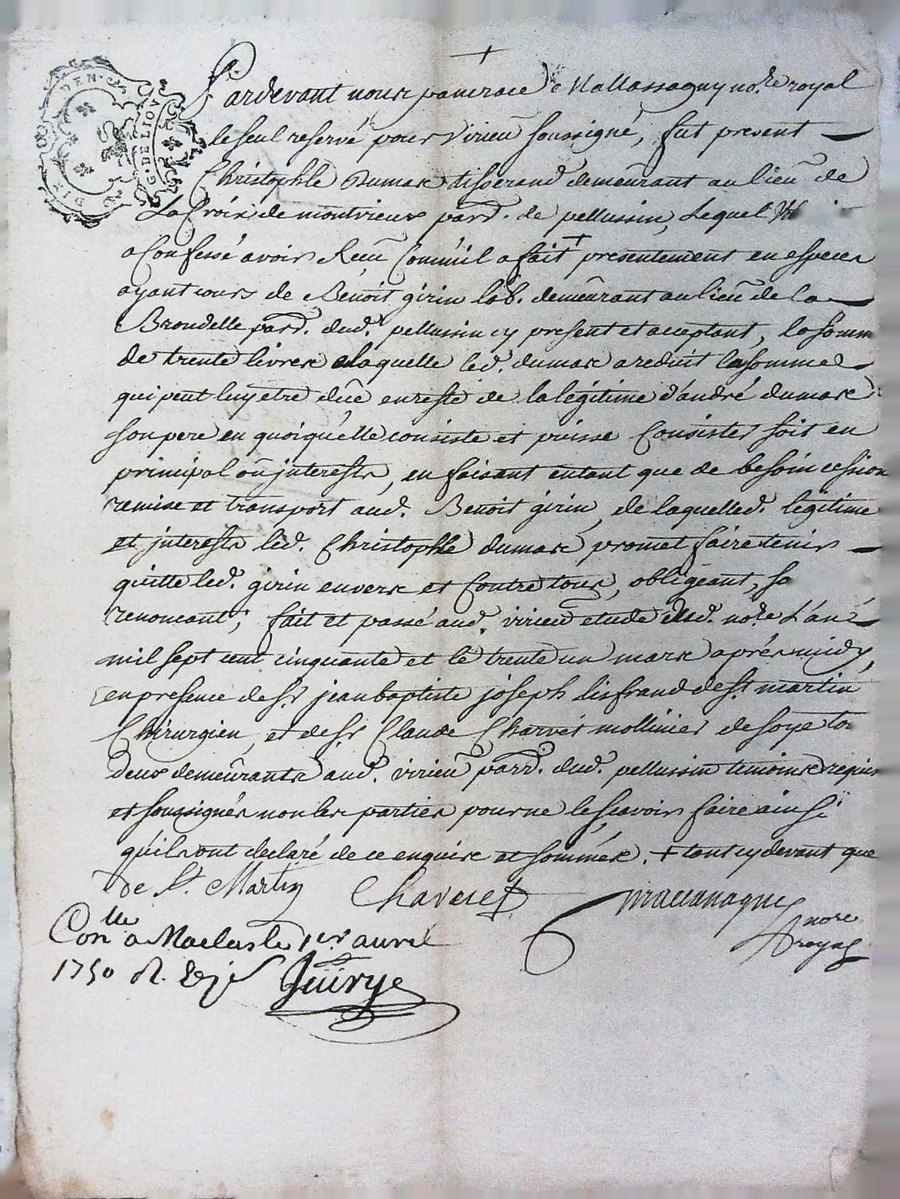 DIX DEN. G. DE LION
+
Pardevant nous pancrace Mallassagny no.re royal
le seul reservé pour Virieu soussigné, fut present
Christophle Dumas tisserand demeurant au lieu de
La Croix de montvieux parr. de pellussin, Lequel
a Confessé avoir Receu Comm'il a fait + presentement en especes
ayant cours de Benoit girin lab. demeurant au lieu de la
Brondelle parr. dud. pellussin cy present et acceptant, la somm
de trente livres a laquelle led. dumas a reduit la somme
qui peut luy etre düe en reste de la légitime d'andré dumas
son pere en quoiqu'elle consiste et puisse Consister soit en
principal ou interests, en faisant entant que de besoin cession
remise et transport aud. Benoit girin, de laquelled. légitime
et interests led. Christophle dumas promet faire tenir
quitte led. girin envers et Contre tous, obligeant, sa
renoncant; fait et passé aud. virieu etude dud. no.re L'an
mil sept cent cinquante et le trente un mars aprés midy,
en presence de sr jean baptiste joseph lisfrand de st martin
Chirurgien, et de sr Claude Charvet mollinier de soye to
deux demeurants aud. virieu parr. dud. pellussin temoins requis
et soussignés non les parties pour ne le scavoir faire ainsi
qu'ils ont declaré de ce enquis et sommés. + tant cy devant que
De St. Martin Charvet
nore
royal
Con.lle a Maclas le 1er avril
1750 R.